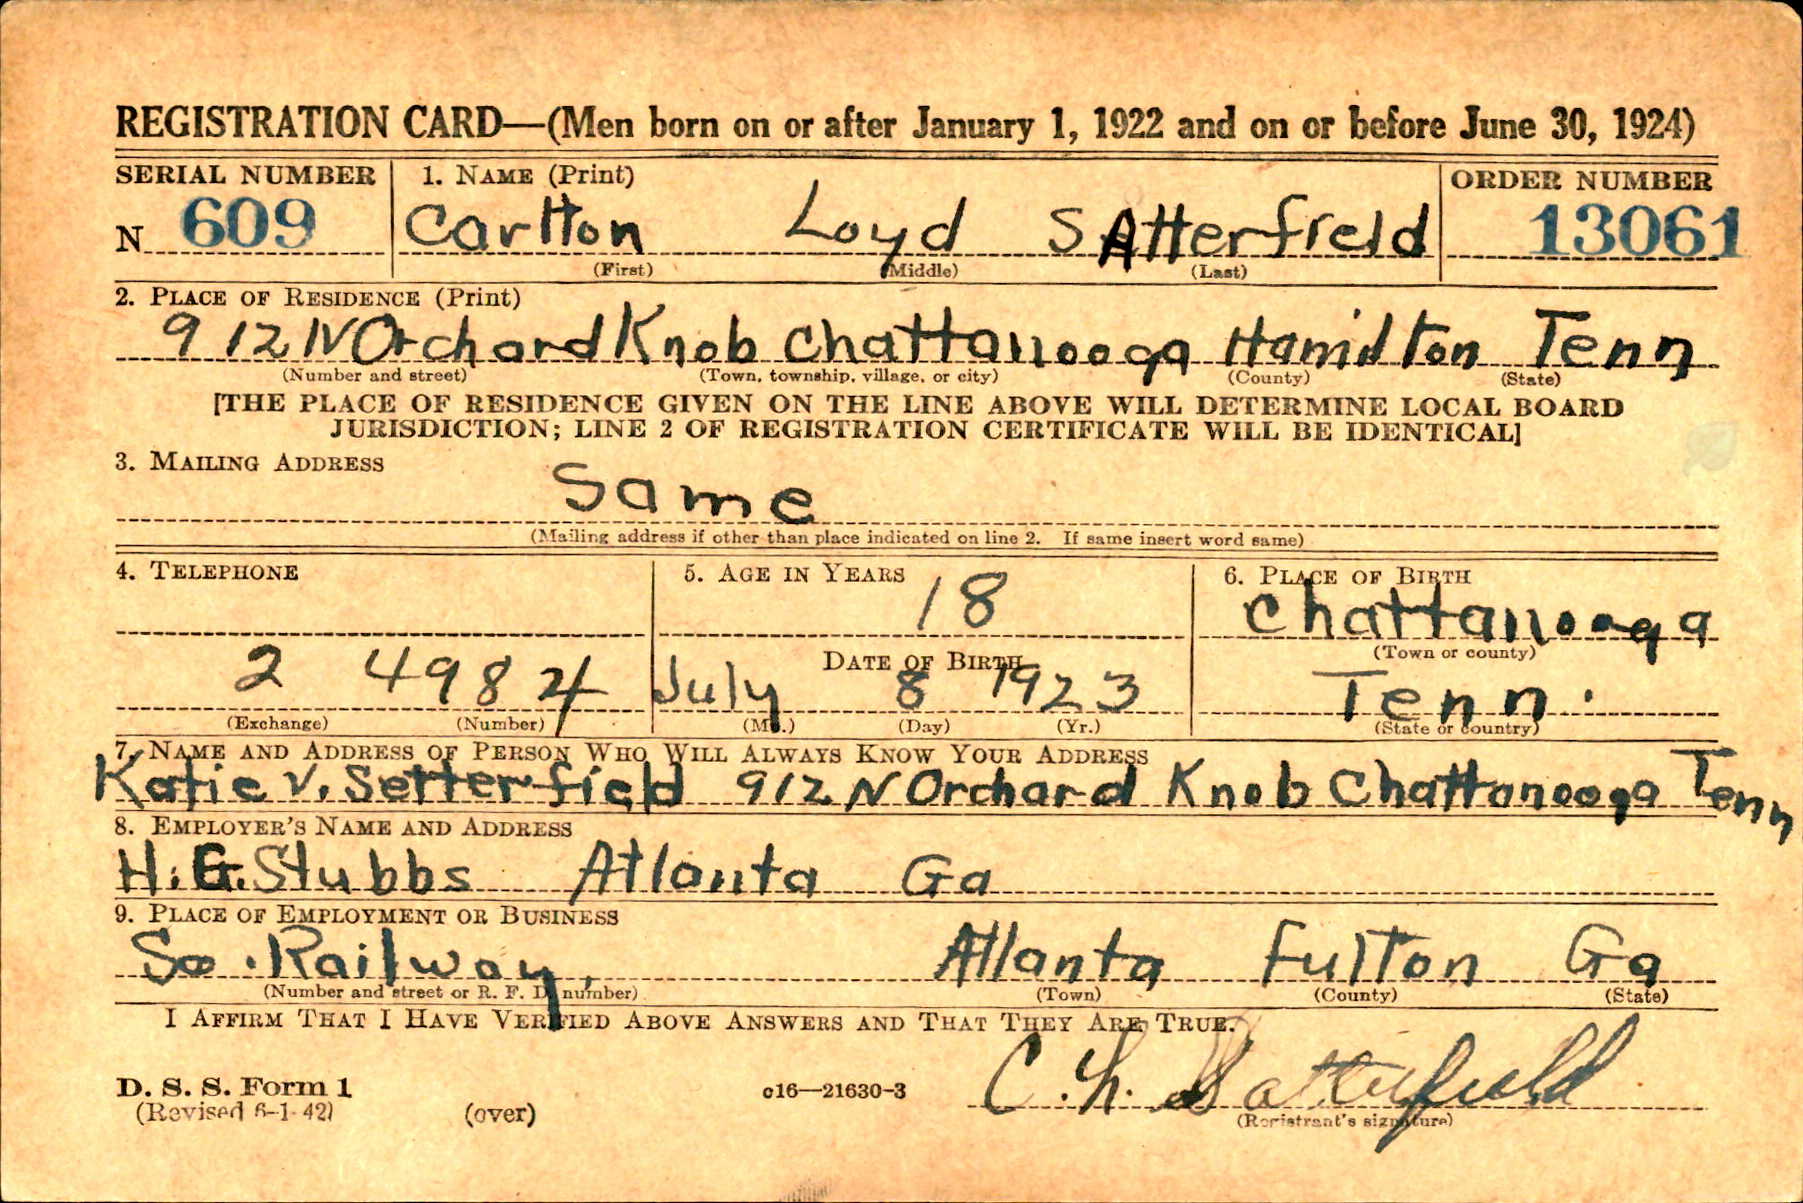 REGISTRATION CARD—(Men born on or after January 1, 1922 and on or before June 30, 1924)
SERIAL NUMBER 1. NAME (Print) ORDER NUMBER
N 609 Carlton Loyd SAtterfield 13061
(First) (Middle) (Last)
2. PLACE OF RESIDENCE (Print)
912 N Orchard Knob Chattanooga Hamilton Tenn
(Number and street) (Town, township, village, or city) (County) (State)
[THE PLACE OF RESIDENCE GIVEN ON THE LINE ABOVE WILL DETERMINE LOCAL BOARD
JURISDICTION; LINE 2 OF REGISTRATION CERTIFICATE WILL BE IDENTICAL]
3. MAILING ADDRESS
Same
(Mailing address if other than place indicated on line 2. If same insert word same)
4. TELEPHONE 5. AGE IN YEARS 6. PLACE OF BIRTH
18 Chattanooga
(Town or county)
DATE OF BIRTH
2 4984 July 8 1923 Tenn.
(Exchange) (Number) (Mo.) (Day) (Yr.) (State or country)
7. NAME AND ADDRESS OF PERSON WHO WILL ALWAYS KNOW YOUR ADDRESS
Katie V. Setterfield 912 N Orchard Knob Chattanooga Tenn
8. EMPLOYER'S NAME AND ADDRESS
H. G. Stubbs Atlanta Ga
9. PLACE OF EMPLOYMENT OR BUSINESS
So. Railway, Atlanta Fulton Ga
(Number and street or R. F. D. number) (Town) (County) (State)
I AFFIRM THAT I HAVE VERIFIED ABOVE ANSWERS AND THAT THEY ARE TRUE.
D. S. S. Form 1 c16—21630-3 C. L. Satterfield
(Revised 6-1-42) (over) (Registrant's signature)